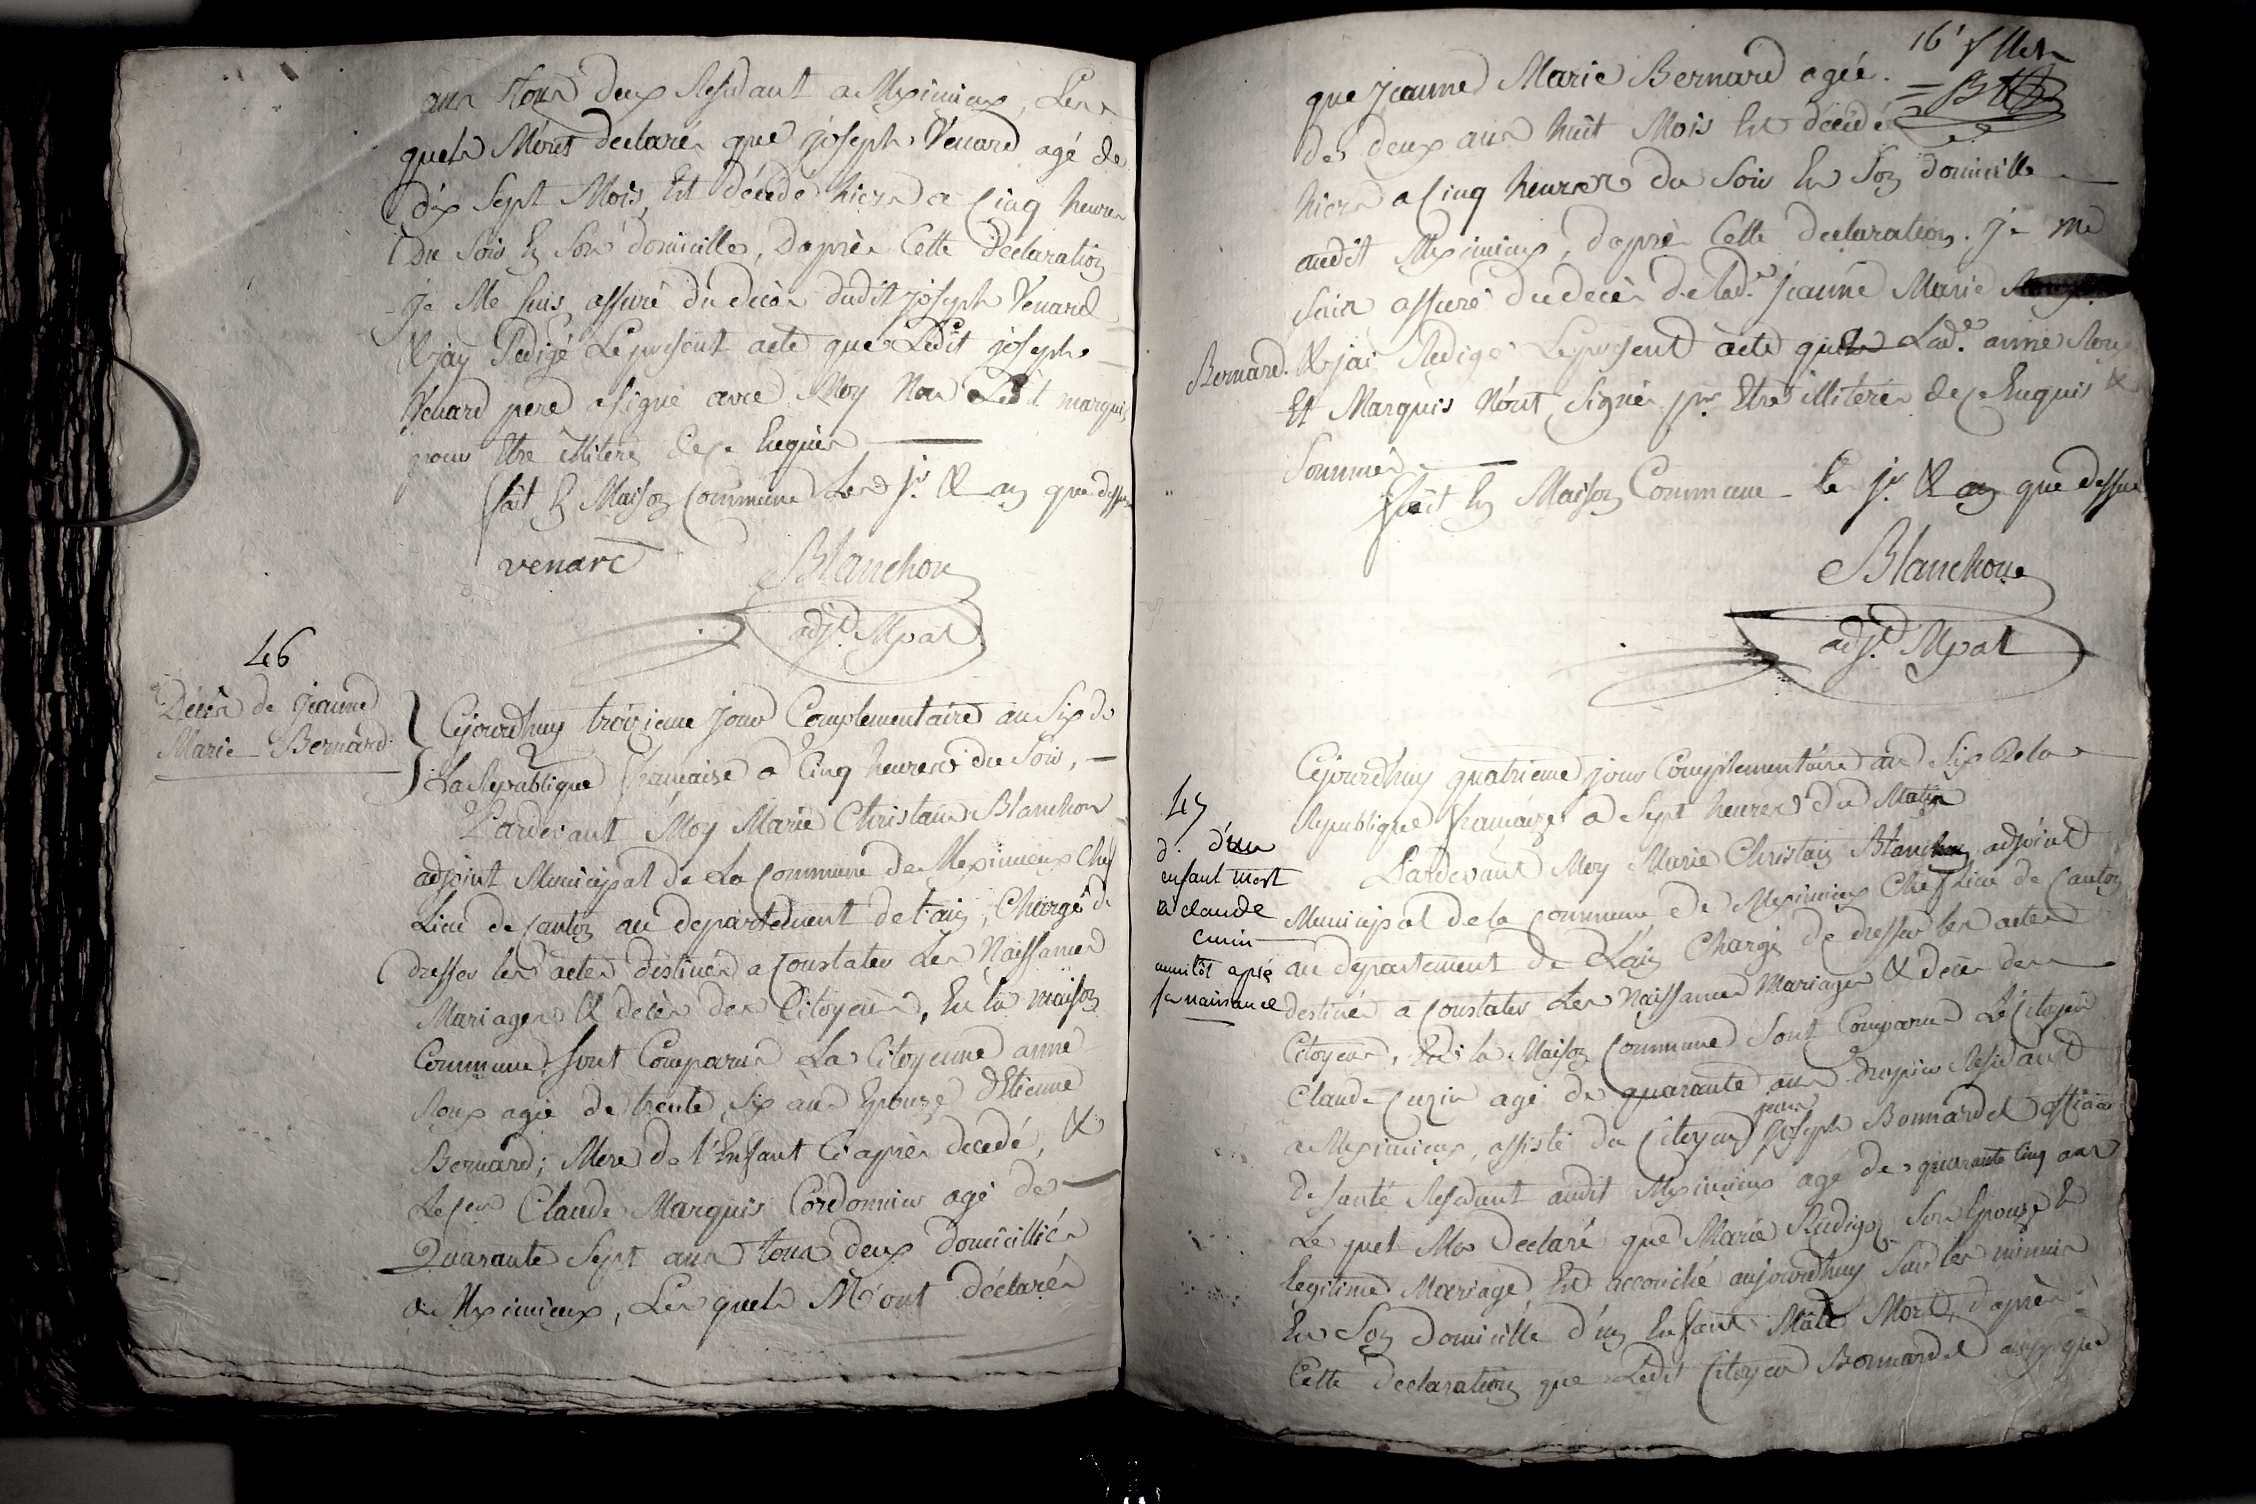 ans tous deux Residant a Meximieux, Les
quels M'ont declarés que joseph Venard agé de
dix Sept Mois, Est décédé hiers a Cinq heures
Du Soir En Son domicille, Daprès Cette Declaration
Je Me Suis assuré du decès dudit joseph Venard
& jay Redigé Le present acte que Ledit joseph
Venard pere a signé avec Moy Non Ledit marquis
pour Etre illiteré de ce Enquis
fait En Maison Commune Les jr. & an que dessus
venard
Blanchon
adjt. Mpal
46
Décès de jeanne
Marie Bernard
Cejourdhuy troisieme jour Complementaire an Six de
La Republique francaise a Cinq heures du Soir,
Pardevant Moy Marie Christain Blanchon
adjoint Municipal de La Commune de Meximieux Chef
Lieu de Canton au departement de l'ain, Chargé de
dresser les actes destinés a Constater Les Naissances
Mariages & decès des Citoyens, En la maison
Commune, Sont Comparus La Citoyenne anne
Roux agée de trente Six ans Epouze d'Etienne
Bernard; Mere de l'Enfant Ci après decedé, &
Le Cen Claude Marquis Cordonnier agé de
Quarante Sept ans tous deux domicilliés
a Meximieux, Les quels M'ont déclarés
16e
que jeanne Marie Bernard agée
de deux ans huit Mois Est décédé
hiers a Cinq heures du Soir En Son domicille
audit Meximieux, daprès Cette declaration. Je me
Suis assuré du decès de Lade. jeanne Marie
Bernard. & jai Redigé Le present acte que Lade. anne Roux
Et Marquis N'ont Signés pr. Etre illiterés de ce Enquis &
Sommés
fait En Maison Commune Les jr. & an que dessus
Blanchon
adjt. Mpal
47
d. d'un
enfant mort
a claude
cuzin
aussitôt après
sa naissance
Cejourdhuy quatrieme jour Complementaire an Six De la
Republique francaize a Sept heures du Matin
Pardevant Moy Marie Christain Blanchon adjoint
Municipal de la Commune de Meximieux Chef Lieu de Canton
au departement de L'ain Chargé de dresser les actes
destinés a Constater Les Naissances Mariages & decès des
Citoyens, En la Maison Commune Sont Comparus Le Citoyen
Claude Cuzin agé de quarante ans Residant
a Meximieux, assisté du Citoyen jean Joseph Bonnardel officier
De Santé Residant audit Meximieux agé de quarante Cinq ans
Le quel M'a Declaré que Marie Rudigoz Son Epouze En
legitime Mariage, Est accouché aujourdhuy Sur les minuis
En Son domicille d'un Enfant Mâle Mort, daprès
Cette declaration que Ledit Citoyen Bonnardel